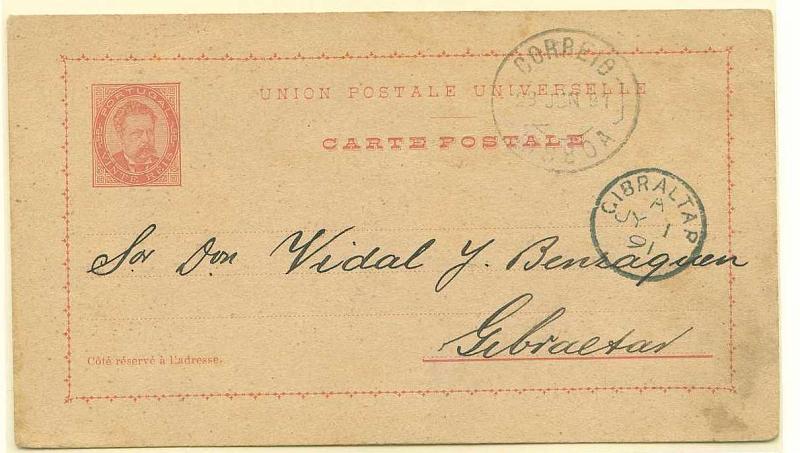 PORTUGAL
VINTE REIS
UNION POSTALE UNIVERSELLE
CARTE POSTALE
CORREIO
JUN 91
LISBOA
GIBRALTAR
A
JY 1
91
Sor Don Vidal J. Benzaquen
Gibraltar
Côté réservé à l'adresse.